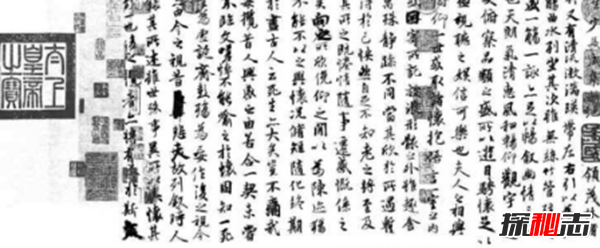 領茂林
又有清流激湍暎帶左右引
觴曲水列坐其次雖無絲竹管
盛一觴一詠亦足以暢敘幽情
也天朗氣清惠風和暢仰觀宇
俯察品類之盛所以遊目騁懷足
視聽之娛信可樂也夫人之相與
仰一世或取諸懷抱悟言一室之內
因寄所託放浪形骸之外雖趣舍
萬殊靜躁不同當其欣於所遇
得於己怏然自足不知老之將至及
其所之既惓情隨事遷感慨係之
矣向之所欣俛仰之間以為陳迹
猶不能不以之興懷況脩短隨化終期
於盡古人云死生亦大矣豈不痛哉
每攬昔人興感之由若合一契未嘗
不臨文嗟悼不能喻之於懷固知一死
生為虛誕齊彭殤為妄作後之視今
亦由今之視昔悲夫故列敘時人
錄其所述雖世殊事異所以興懷其
致一也後之攬者亦將有感於斯
太上皇帝之寶
探秘志